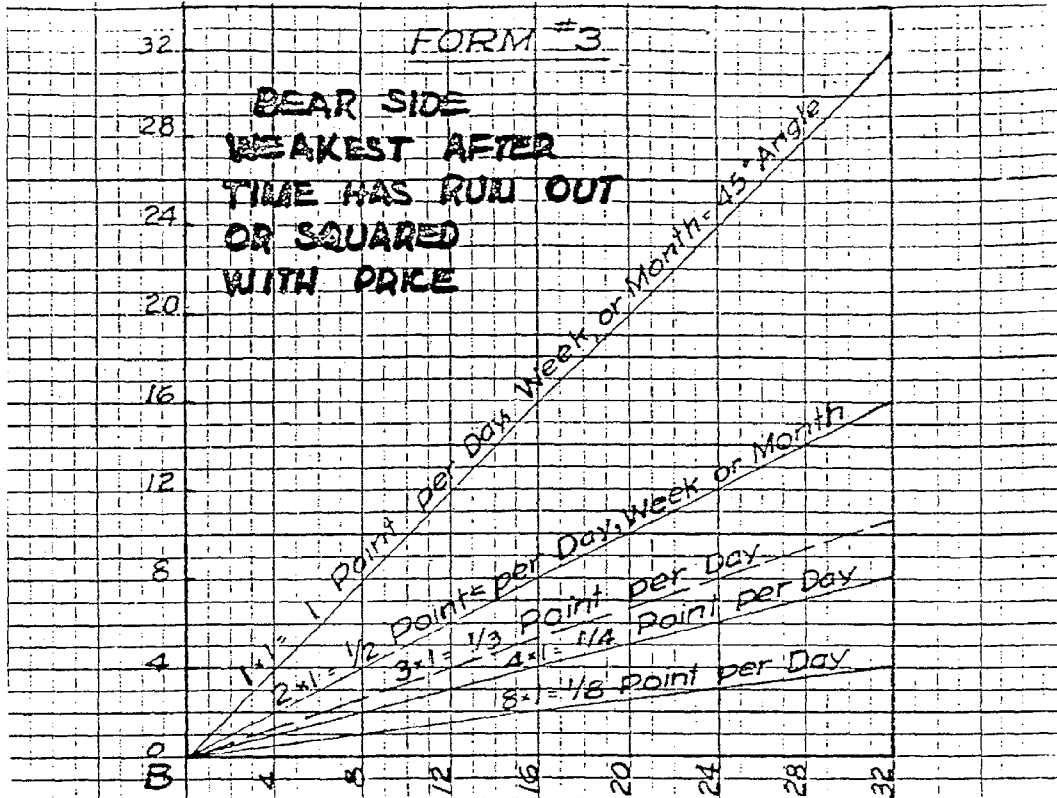 FORM #3
BEAR SIDE
WEAKEST AFTER
TIME HAS RUN OUT
OR SQUARED
WITH PRICE
32
28
24
20
16
12
8
4
0
1×1= 1 Point per Day, Week, or Month=45° Angle
2×1=1/2 Point=per Day, Week or Month
3×1= 1/3 Point per Day
4×1=1/4 Point per Day
8×1=1/8 Point per Day
B 4 8 12 16 20 24 28 32